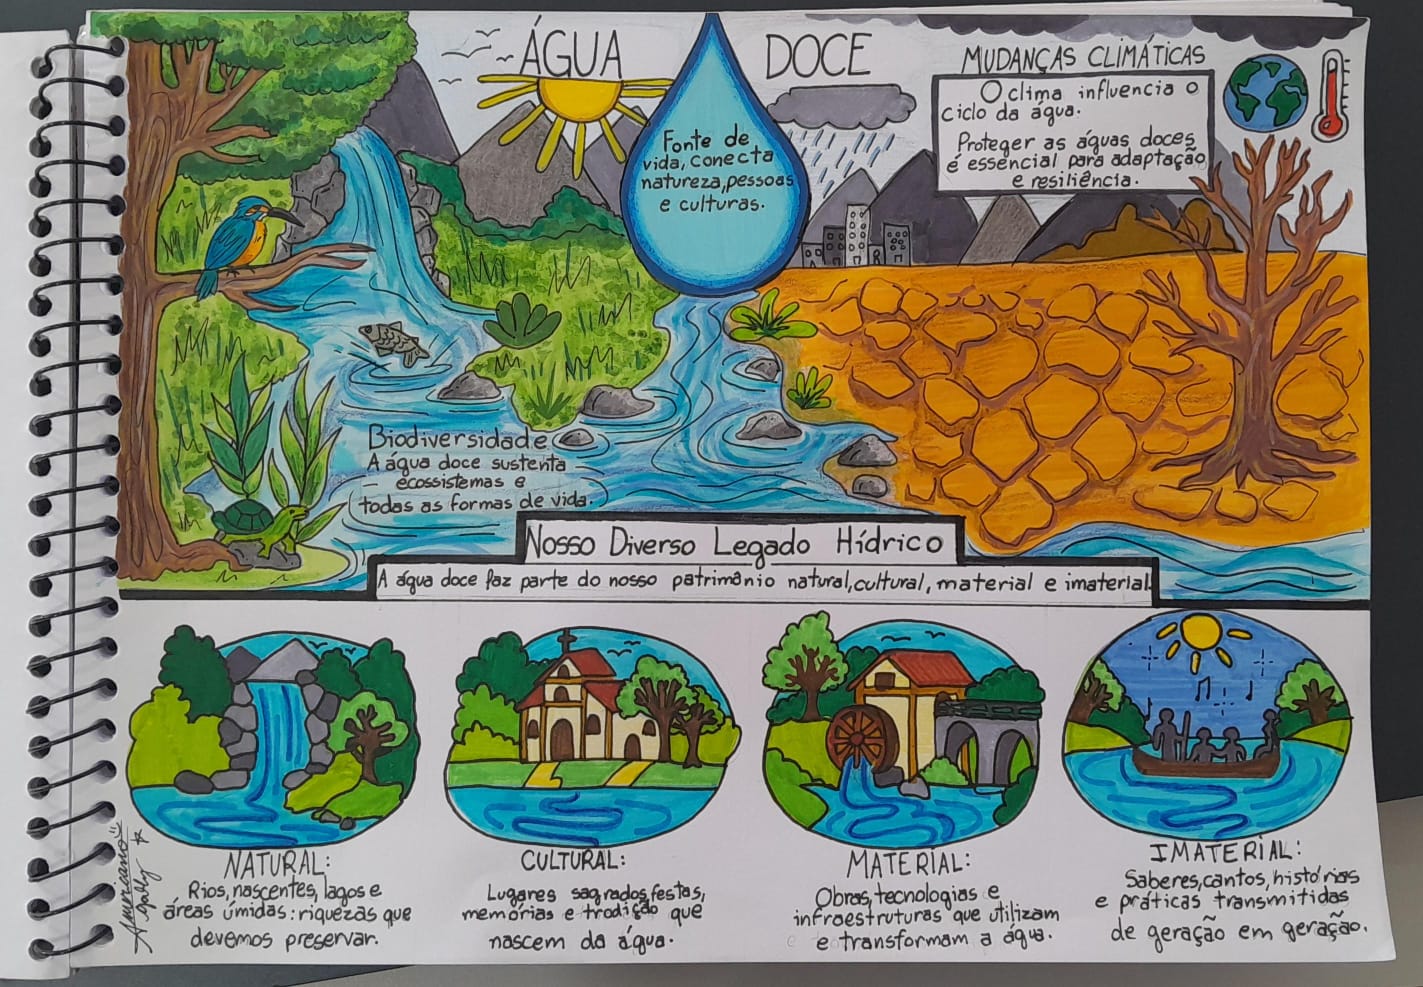 ÁGUA DOCE
Fonte de
vida, conecta
natureza, pessoas
e culturas.
MUDANÇAS CLIMÁTICAS
O clima influencia o
ciclo da água.
Proteger as águas doces
é essencial para adaptação
e resiliência.
Biodiversidade
A água doce sustenta
ecossistemas e
todas as formas de vida.
Nosso Diverso Legado Hídrico
A água doce faz parte do nosso patrimônio natural, cultural, material e imaterial.
NATURAL:
Rios, nascentes, lagos e
áreas úmidas: riquezas que
devemos preservar.
CULTURAL:
Lugares sagrados, festas,
memórias e trodição que
nascem da água.
MATERIAL:
Obras, tecnologias e
infraestruturas que utilizam
e transformam a água.
IMATERIAL:
Saberes, cantos, histórias
e práticas transmitidas
de geração em geração.
Americano
Gably